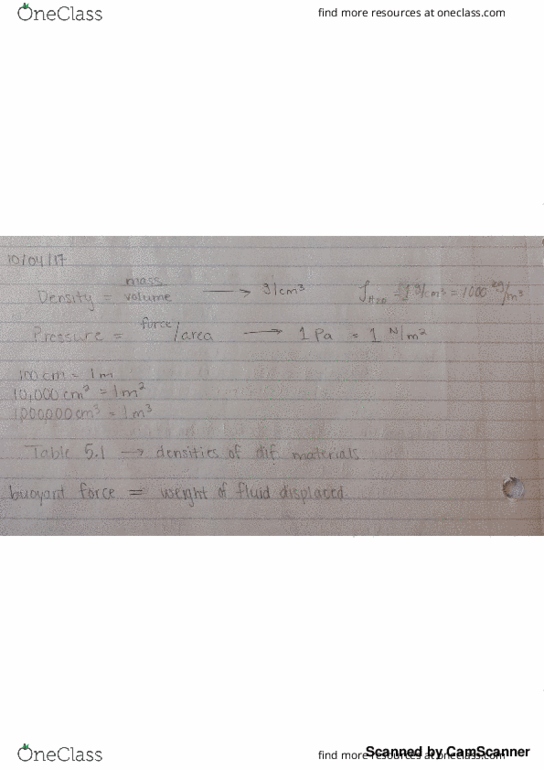 OneClass find more resources at oneclass.com
10/04/17
Density = mass/volume → g/cm³ ρH2O = 1 g/cm³ = 1000 kg/m³
Pressure = force/area → 1 Pa = 1 N/m²
100 cm = 1m
10,000 cm² = 1m²
1,000,000 cm³ = 1m³
Table 5.1 → densities of dif. materials
buoyant force = weight of fluid displaced
OneClass find more resources at oneclass.com
Scanned by CamScanner